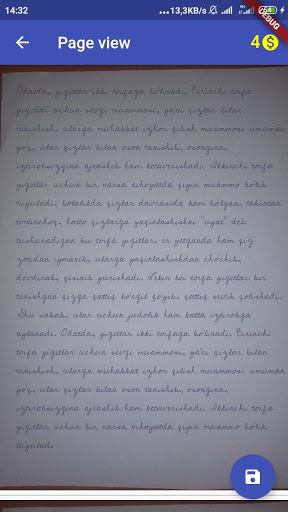 14:32
...13,3KB/s
DEBUG
Page view
4
Odatda, yigitlar ikki toifaga bo'linadi. Birinchi toifa
yigitlar uchun sevgi muammosi, ya'ni qizlar bilan
tanishish, ularga muhabbat izhor qilish muammosi umuman
yo'q, ular qizlar bilan oson tanishib, osongina,
iztirobsizgina ajrashib ham ketaverishadi. Ikkinchi toifa
yigitlar uchun bir narsa nihoyatda qiyin muammo bo'lib
tuyuladi, bolalikda qizlar davrasida kam bo'lgan, tabiatan
tortinchoq, hatto qizlarga yaqinlashishni "uyat" deb
tushunadigan bu toifa yigitlar, er yetganda ham qiz
zotidan iymanib, ularga yaqinlashishdan cho'chib,
dovdirab, qisinib yurishadi. Lekin bu toifa yigitlar bir
tanishgan qizga qattiq ko'ngil qo'yib, qattiq sevib qolishadi.
Shu sabab, ular uchun judolik ham katta iztirobga
aylanadi. Odatda, yigitlar ikki toifaga bo'linadi. Birinchi
toifa yigitlar uchun sevgi muammosi, ya'ni qizlar bilan
tanishish, ularga muhabbat izhor qilish muammosi umuman
yo'q, ular qizlar bilan oson tanishib, osongina,
iztirobsizgina ajrashib ham ketaverishadi. Ikkinchi toifa
yigitlar uchun bir narsa nihoyatda qiyin muammo bo'lib
tuyuladi